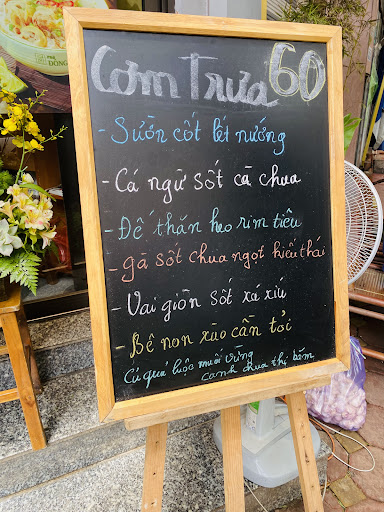 ĐÔNG
Cơm Trưa 60
- Sườn cốt lết nướng
- Cá ngừ sốt cà chua
- Đế thăn heo rim tiêu
- gà sốt chua ngọt kiểu thái
- Vai giòn sốt xá xíu
- Bê non xào cần tỏi
Củ quả luộc muối vừng
canh chua thịt bằm